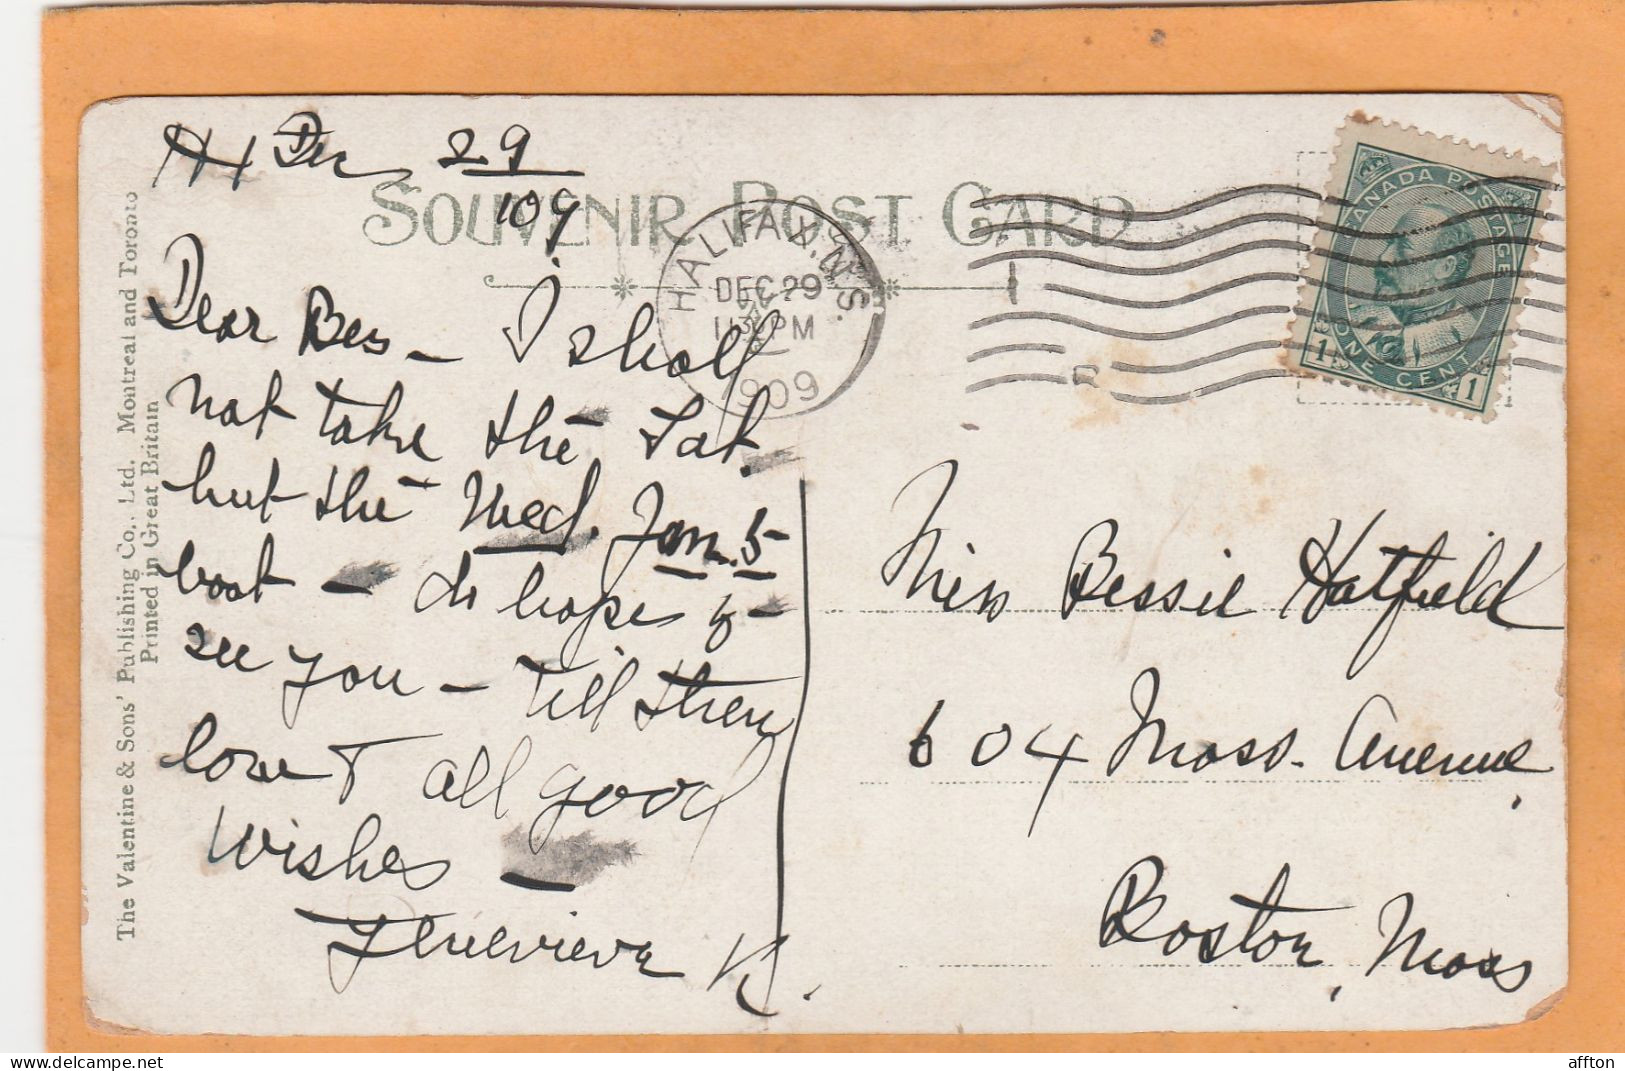 Dec 29
/09
SOUVENIR POST CARD
HALIFAX, N.S.
DEC 29
PM
1909
CANADA POSTAGE
1 ONE CENT 1
Dear Bess - I shall
not take the Sat.
but the Wed. Jan. 5
boat - do hope to
see you - till then
love & all good
wishes -
Genevieve K.
Miss Bessie Hatfield
604 Mass. Avenue,
Boston, Mass
The Valentine & Sons' Publishing Co., Ltd. Montreal and Toronto
Printed in Great Britain
affton